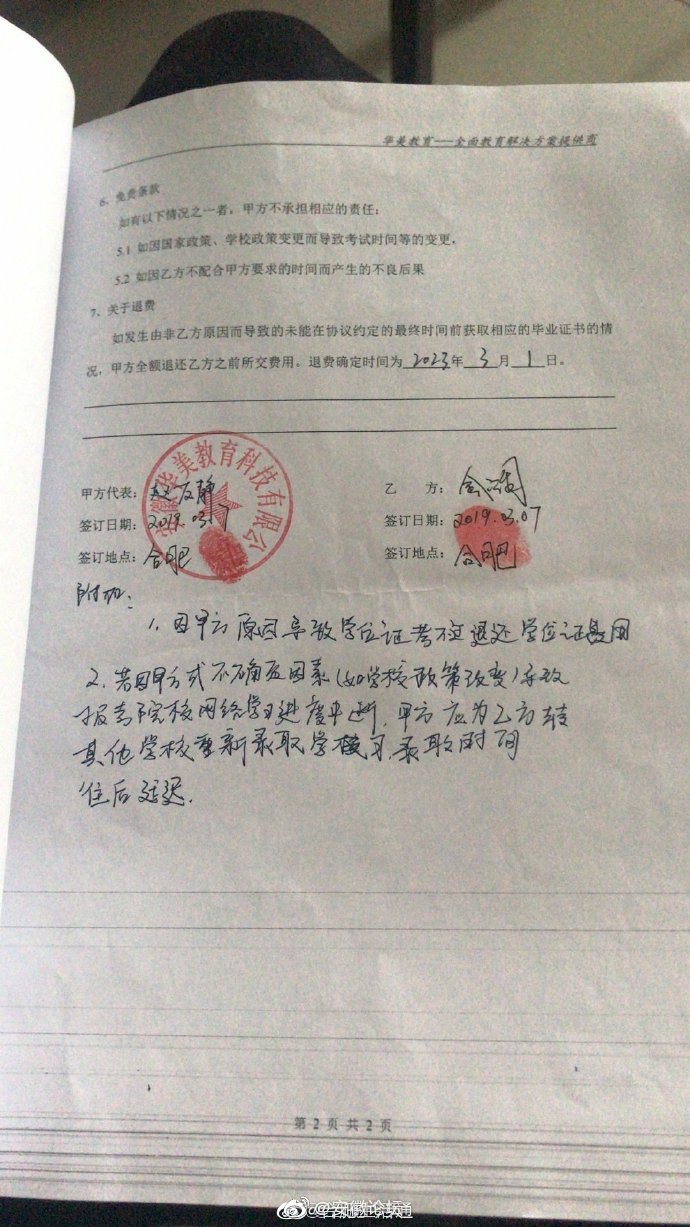 华美教育——全面教育解决方案提供商
6、免费条款
如有以下情况之一者，甲方不承担相应的责任；
5.1 如因国家政策、学校政策变更而导致考试时间等的变更，
5.2 如因乙方不配合甲方要求的时间而产生的不良后果
7、关于退费
如发生由非乙方原因而导致的未能在协议约定的最终时间前获取相应的毕业证书的情
况，甲方全额退还乙方之前所交费用。退费确定时间为2023年3月1日。
安徽华美教育科技有限公
甲方代表：
乙 方：
签订日期：2019.03.7
签订日期：2019.03.07
签订地点：合肥
签订地点：合肥
附加：
1. 因甲方原因导致学位证考不过退还学位证费用
2. 若因甲方式不确定因素（如学校政策改变）导致
报考院校网络学习进度中断，甲方应为乙方转
其他学校重新录取学习，录取时间
往后延迟.
第 2 页 共 2 页
@安徽论坛